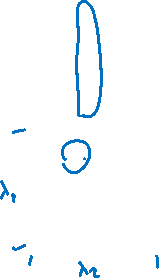 λ₁
λ₂